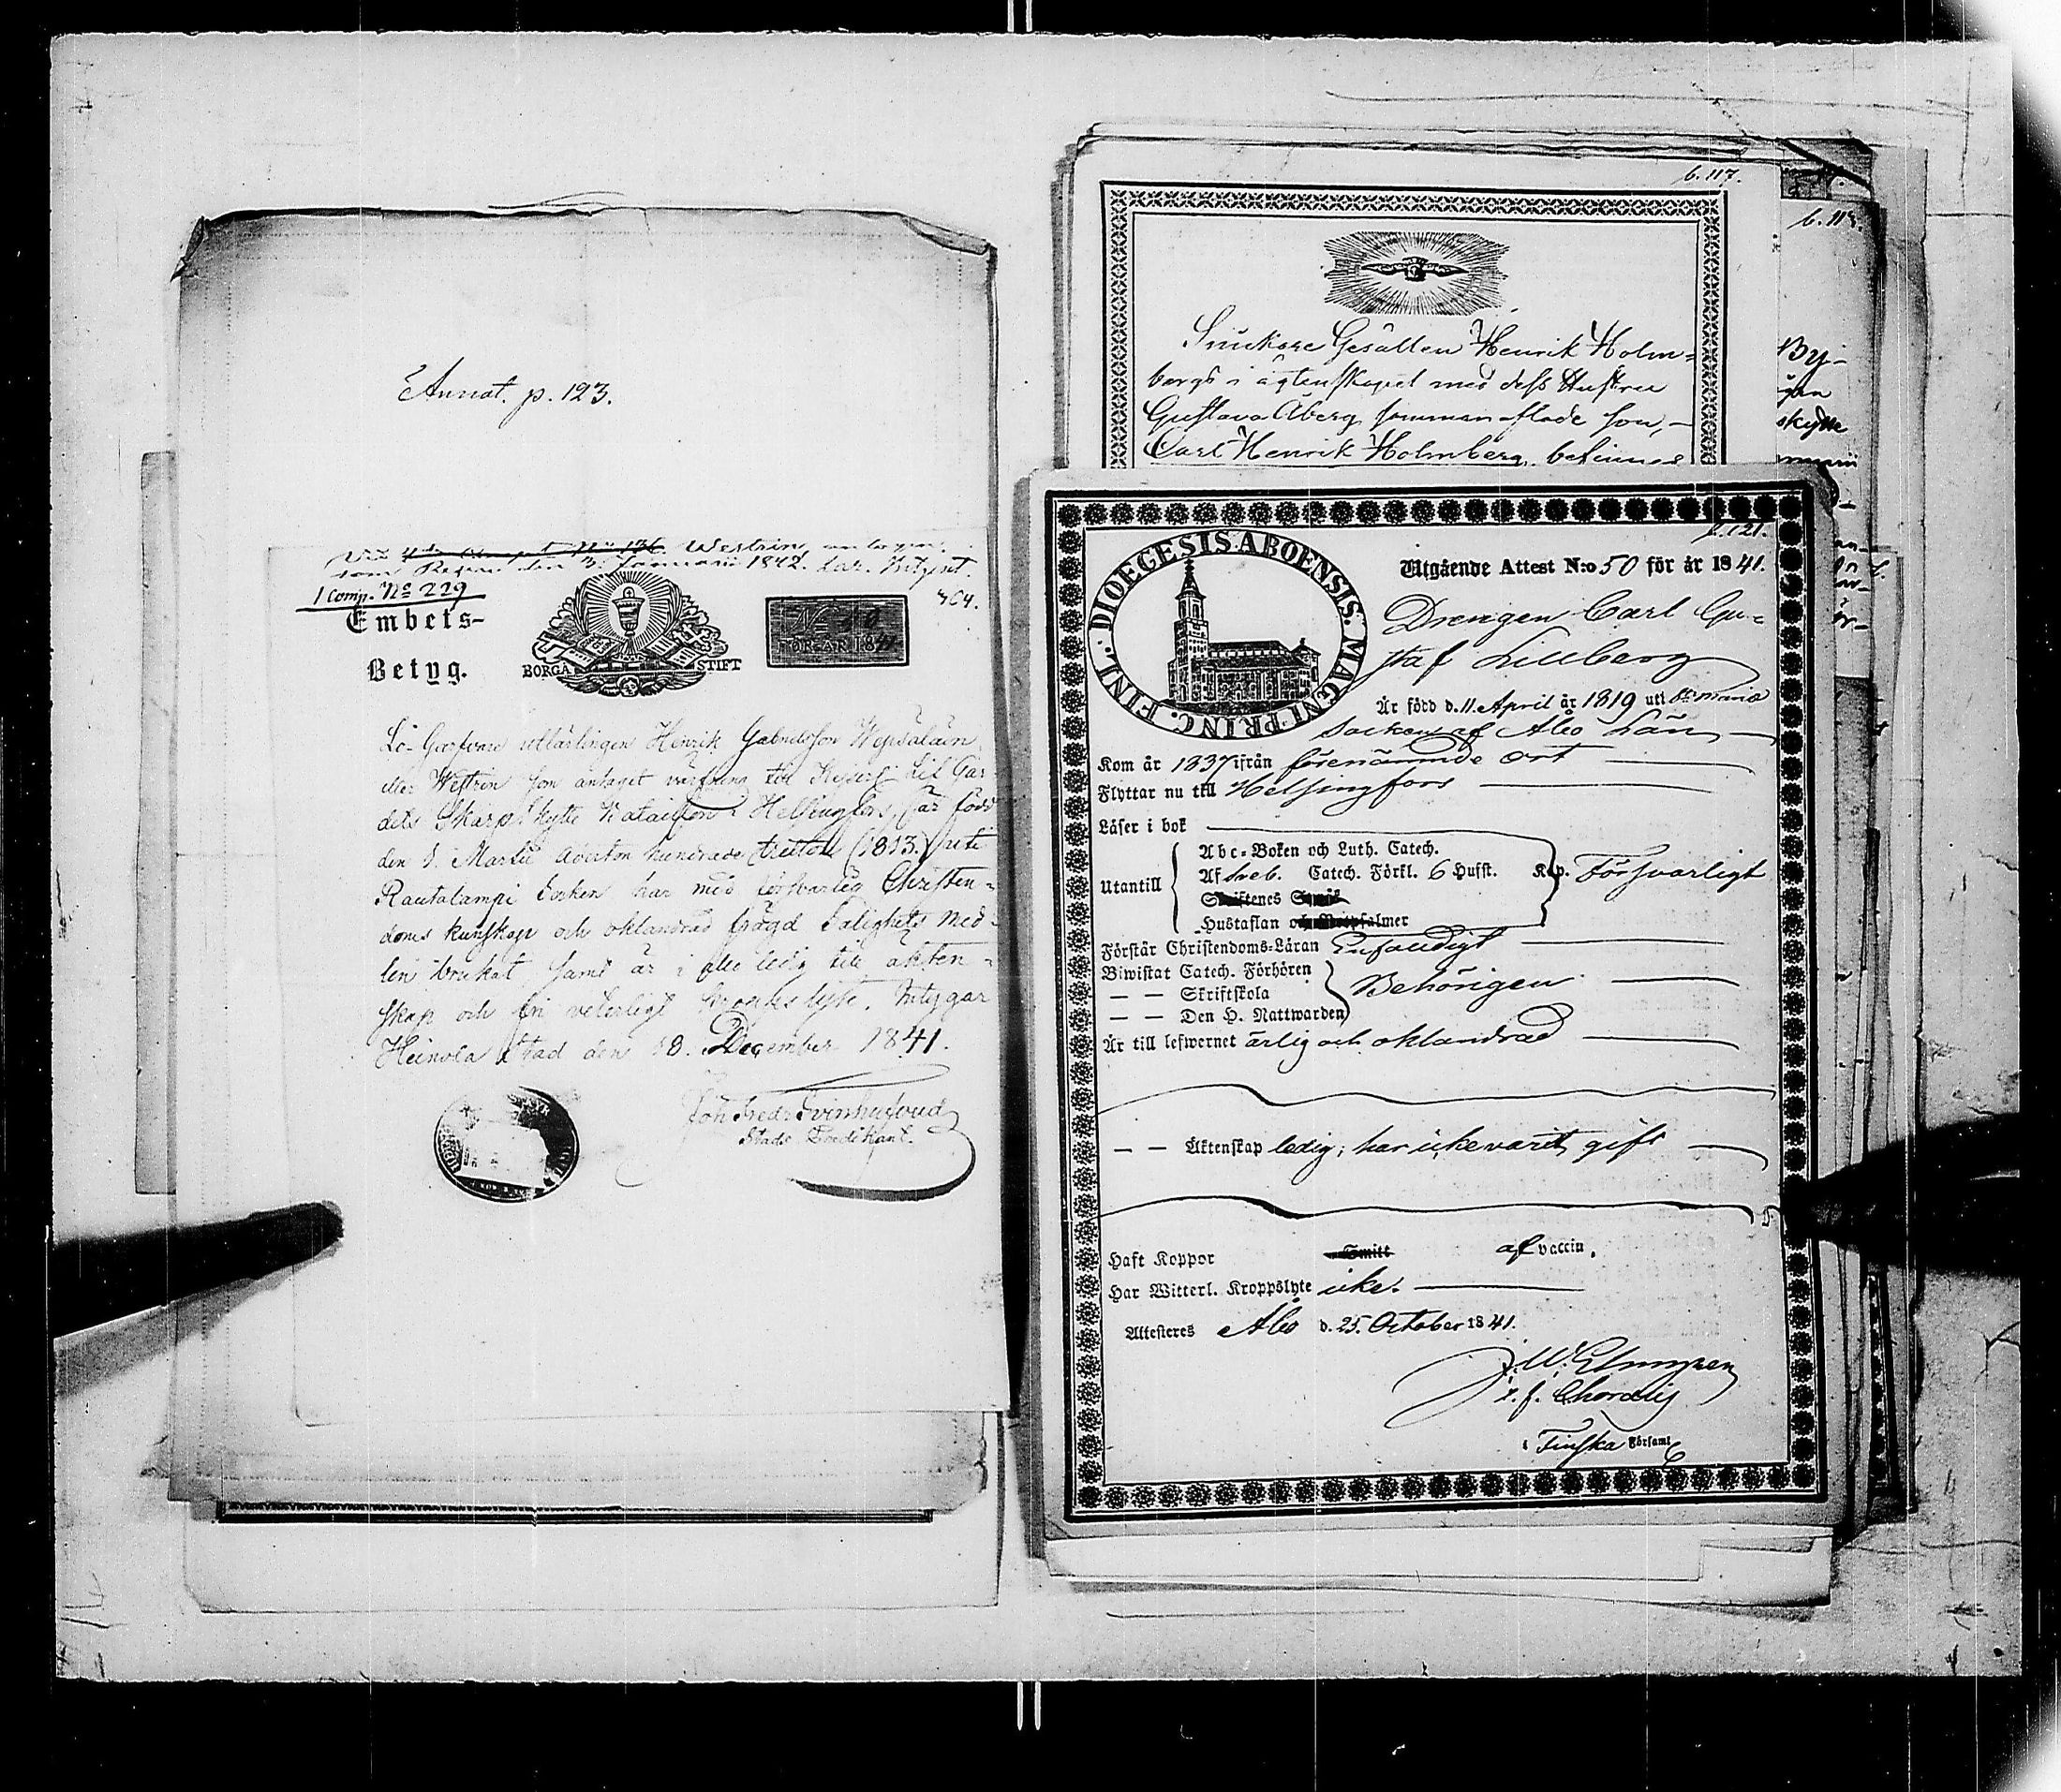 Annot. p. 123.
Westrin, antagen
som Rekryt den 3. Januarii 1842.
1 Comp. No 229
304.
Embets-
Betyg.
BORGÅ STIFT
FÖR ÅR 1841
Lö- Garfvare utlärlingen Henrik Gabrielsson Wepsäläin
eller Westrin som antaget värfning vid Kejserl. Lif Gar-
dets Skarp Skytte Bataillon i Helsingfors, är född
den 8. Martii Aderton hundrade tretton (1813.) uti
Rautalampi Socken har med försvarlig Christen-
doms kunskap och oklandrad frägd Salighets med-
len brukat samt är i allo ledig till äkten-
skap och fri veterligt kroppslyte. Intygar
Heinola Stad den 18. December 1841.
Joh Fredr Svinhufvud
Stads Predikant.
b. 117.
Snickare Gesällen Henrik Holm-
bergs i ägtenskapet med dess Hustru
Gustava Åberg sammanaflade Son,
Carl Henrik Holmberg, befinnes
b. 118.
By-
skytte
b. 121.
DIOEGESIS ABOENSIS. MAGNI PRINC. FINL.
Utgående Attest N:o 50 för år 1841.
Drengen Carl Gu-
staf Lillberg
Är född d. 11. April år 1819 uti St: Marie
Socken af Åbo Län
Kom år 1837 ifrån förenämnde ort
Flyttar nu till Helsingfors
Läser i bok
Abc-Boken och Luth. Catech.
Utantill Af Sveb. Catech. Förkl. 6 Hufst. Kap. Försvarligt
Skriftenes Språk
Hustaflan och Botpsalmer
Förstår Christendoms-Läran Enfaldigt
Biwistat Catech. Förhören
— — Skriftskola Behörigen
— — Den H. Nattwarden
Är till lefwernet ärlig och oklandrad
— — Äktenskap ledig; har icke varit gift
Haft Koppor Smitt af vaccin.
Har Witterl. Kroppslyte icke.
Attesteres Åbo d. 25. October 1841.
i Finska Församl